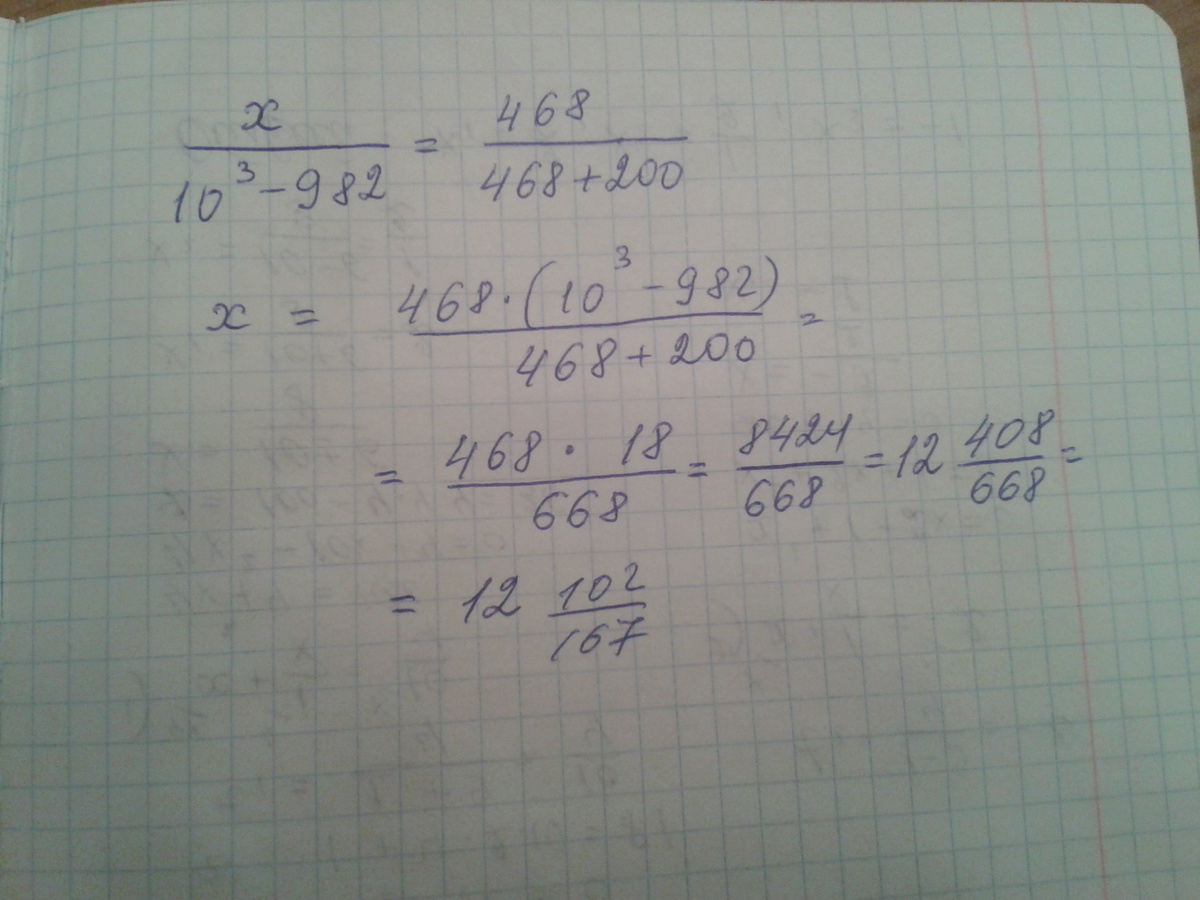 x/(10³-982) = 468/(468+200)
x = 468·(10³-982)/(468+200) =
= 468·18/668 = 8424/668 = 12 408/668 =
= 12 102/167